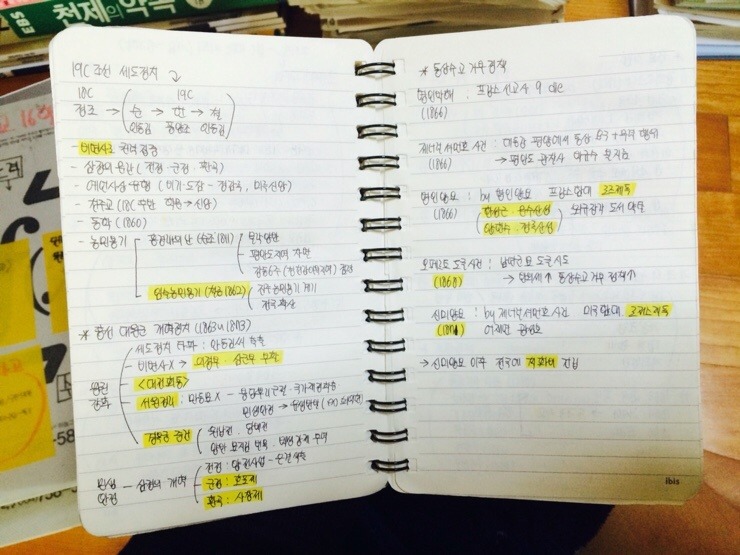 EBS
천제의 약속
19C 조선 세도정치
18C 19C
정조 → 순 → 헌 → 철
안동김 풍양조 안동김
- 비변사로 권력 집중
- 삼정의 문란 (전정 · 군정 · 환곡)
- 예언사상 유행 (비기·도참 - 정감록, 미륵신앙)
- 천주교 (18C 후반 학문→신앙)
- 동학 (1860)
- 농민봉기
홍경래의 난 (순조 1811)
몰락양반
평안도지역 차별
임술농민봉기 (철종 1862)
진주농민봉기 계기
전국 확산
* 흥선대원군 개혁정치 (1863~1873)
왕권
강화
세도정치 타파 : 안동김씨 축출
- 비변사 X → 의정부 · 삼군부 부활
<대전회통>
서원정리 : 만동묘 X - 붕당뿌리근절 · 국가재정확충
경복궁 중건
원납전 · 당백전
양반 묘지림 벌목 · 백성 강제 부역
민생
안정
- 삼정의 개혁
전정 : 양전사업 - 은결 색출
군정 : 호포제
환곡 : 사창제
* 통상수교 거부정책
병인박해 : 프랑스 신부 9 die
(1866)
제너럴셔먼호 사건 : 대동강 평양에서 통상 요구 + 약탈 행위
(1866) → 평안도 관찰사 박규수 불지름
병인양요 : by 병인박해 프랑스함대 로즈제독
(1866)
한성근 · 문수산성
양헌수 · 정족산성
외규장각 도서 약탈
오페르트 도굴사건 : 남연군묘 도굴 시도
(1868) → 통상수교 거부 정책↑
신미양요 : by 제너럴셔먼호 사건 미국함대 로저스제독
(1871) 어재연 광성보
→ 신미양요 이후 전국에 척화비 건립
ibis